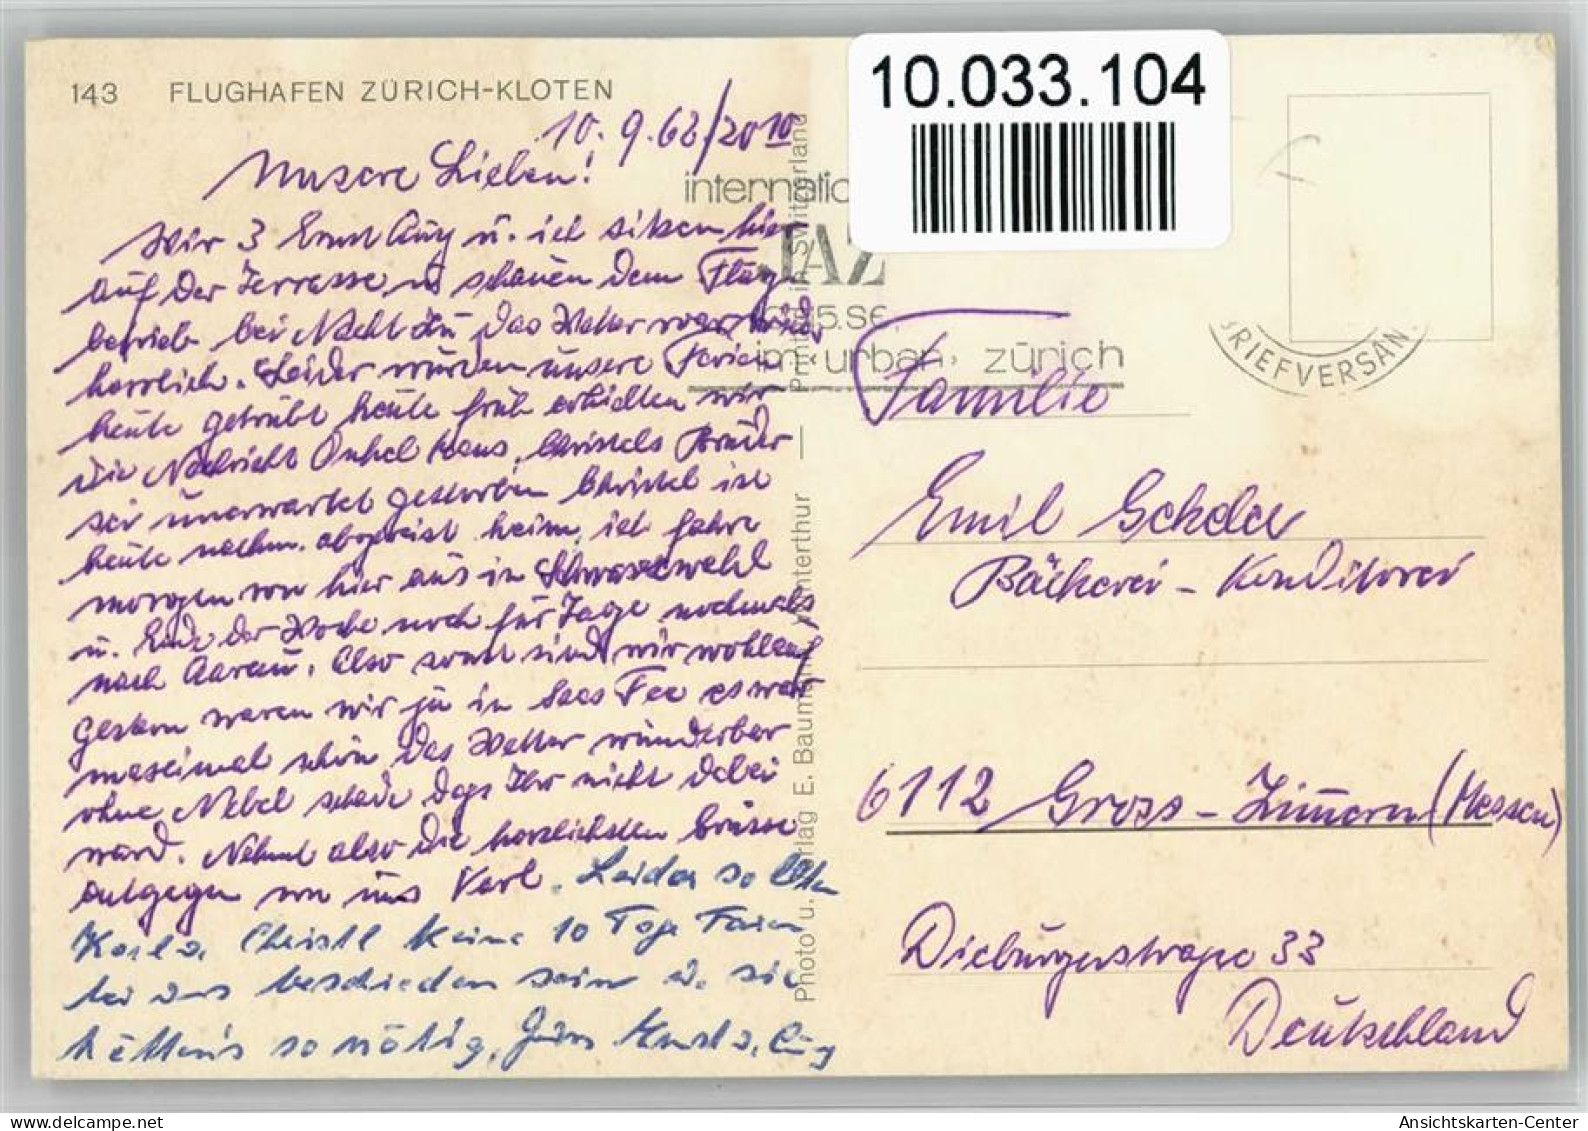 143 FLUGHAFEN ZÜRICH-KLOTEN
10.033.104
10. 9. 68/20 10
Unsere Lieben!
Wir 3 Ernst Aug u. ich sitzen hier
auf der Terrasse u schauen dem Flug
betrieb bei Nacht zu das Wetter war
herrlich. Leider wurden unsere Ferien
heute getrübt heute früh erhielten wir
die Nachricht Onkel Hans, Christels Bruder
sei unerwartet gestorben Christel ist
heute nachm. abgereist heim, ich fahre
morgen von hier aus in Schwarzwald
u. Ende der Woche noch für Tage nochmals
nach Aarau. Also sonst sind wir wohlauf
Gestern waren wir ja in Saas Fee es war
maximal schön das Wetter wunderbar
ohne Nebel schade dass Ihr nicht dabei
ward. Nehmt also die herzlichsten Grüsse
entgegen von uns Karl. Leider sollten
Karl u. Christl keine 10 Tage Ferien
bei uns beschieden sein u. sie
hätten's so nötig. Ernst u. Guy
internatio
JAZ
15.SE.
im ‹urban› zürich
BRIEFVERSAN
Printed in Switzerland
Photo u. Verlag E. Baumann, Winterthur
Familie
Emil
Bäckerei - Konditorei
6112 Gross-Zimmern (Hessen)
Dieburgerstrasse 33
Deutschland
Ansichtskarten-Center